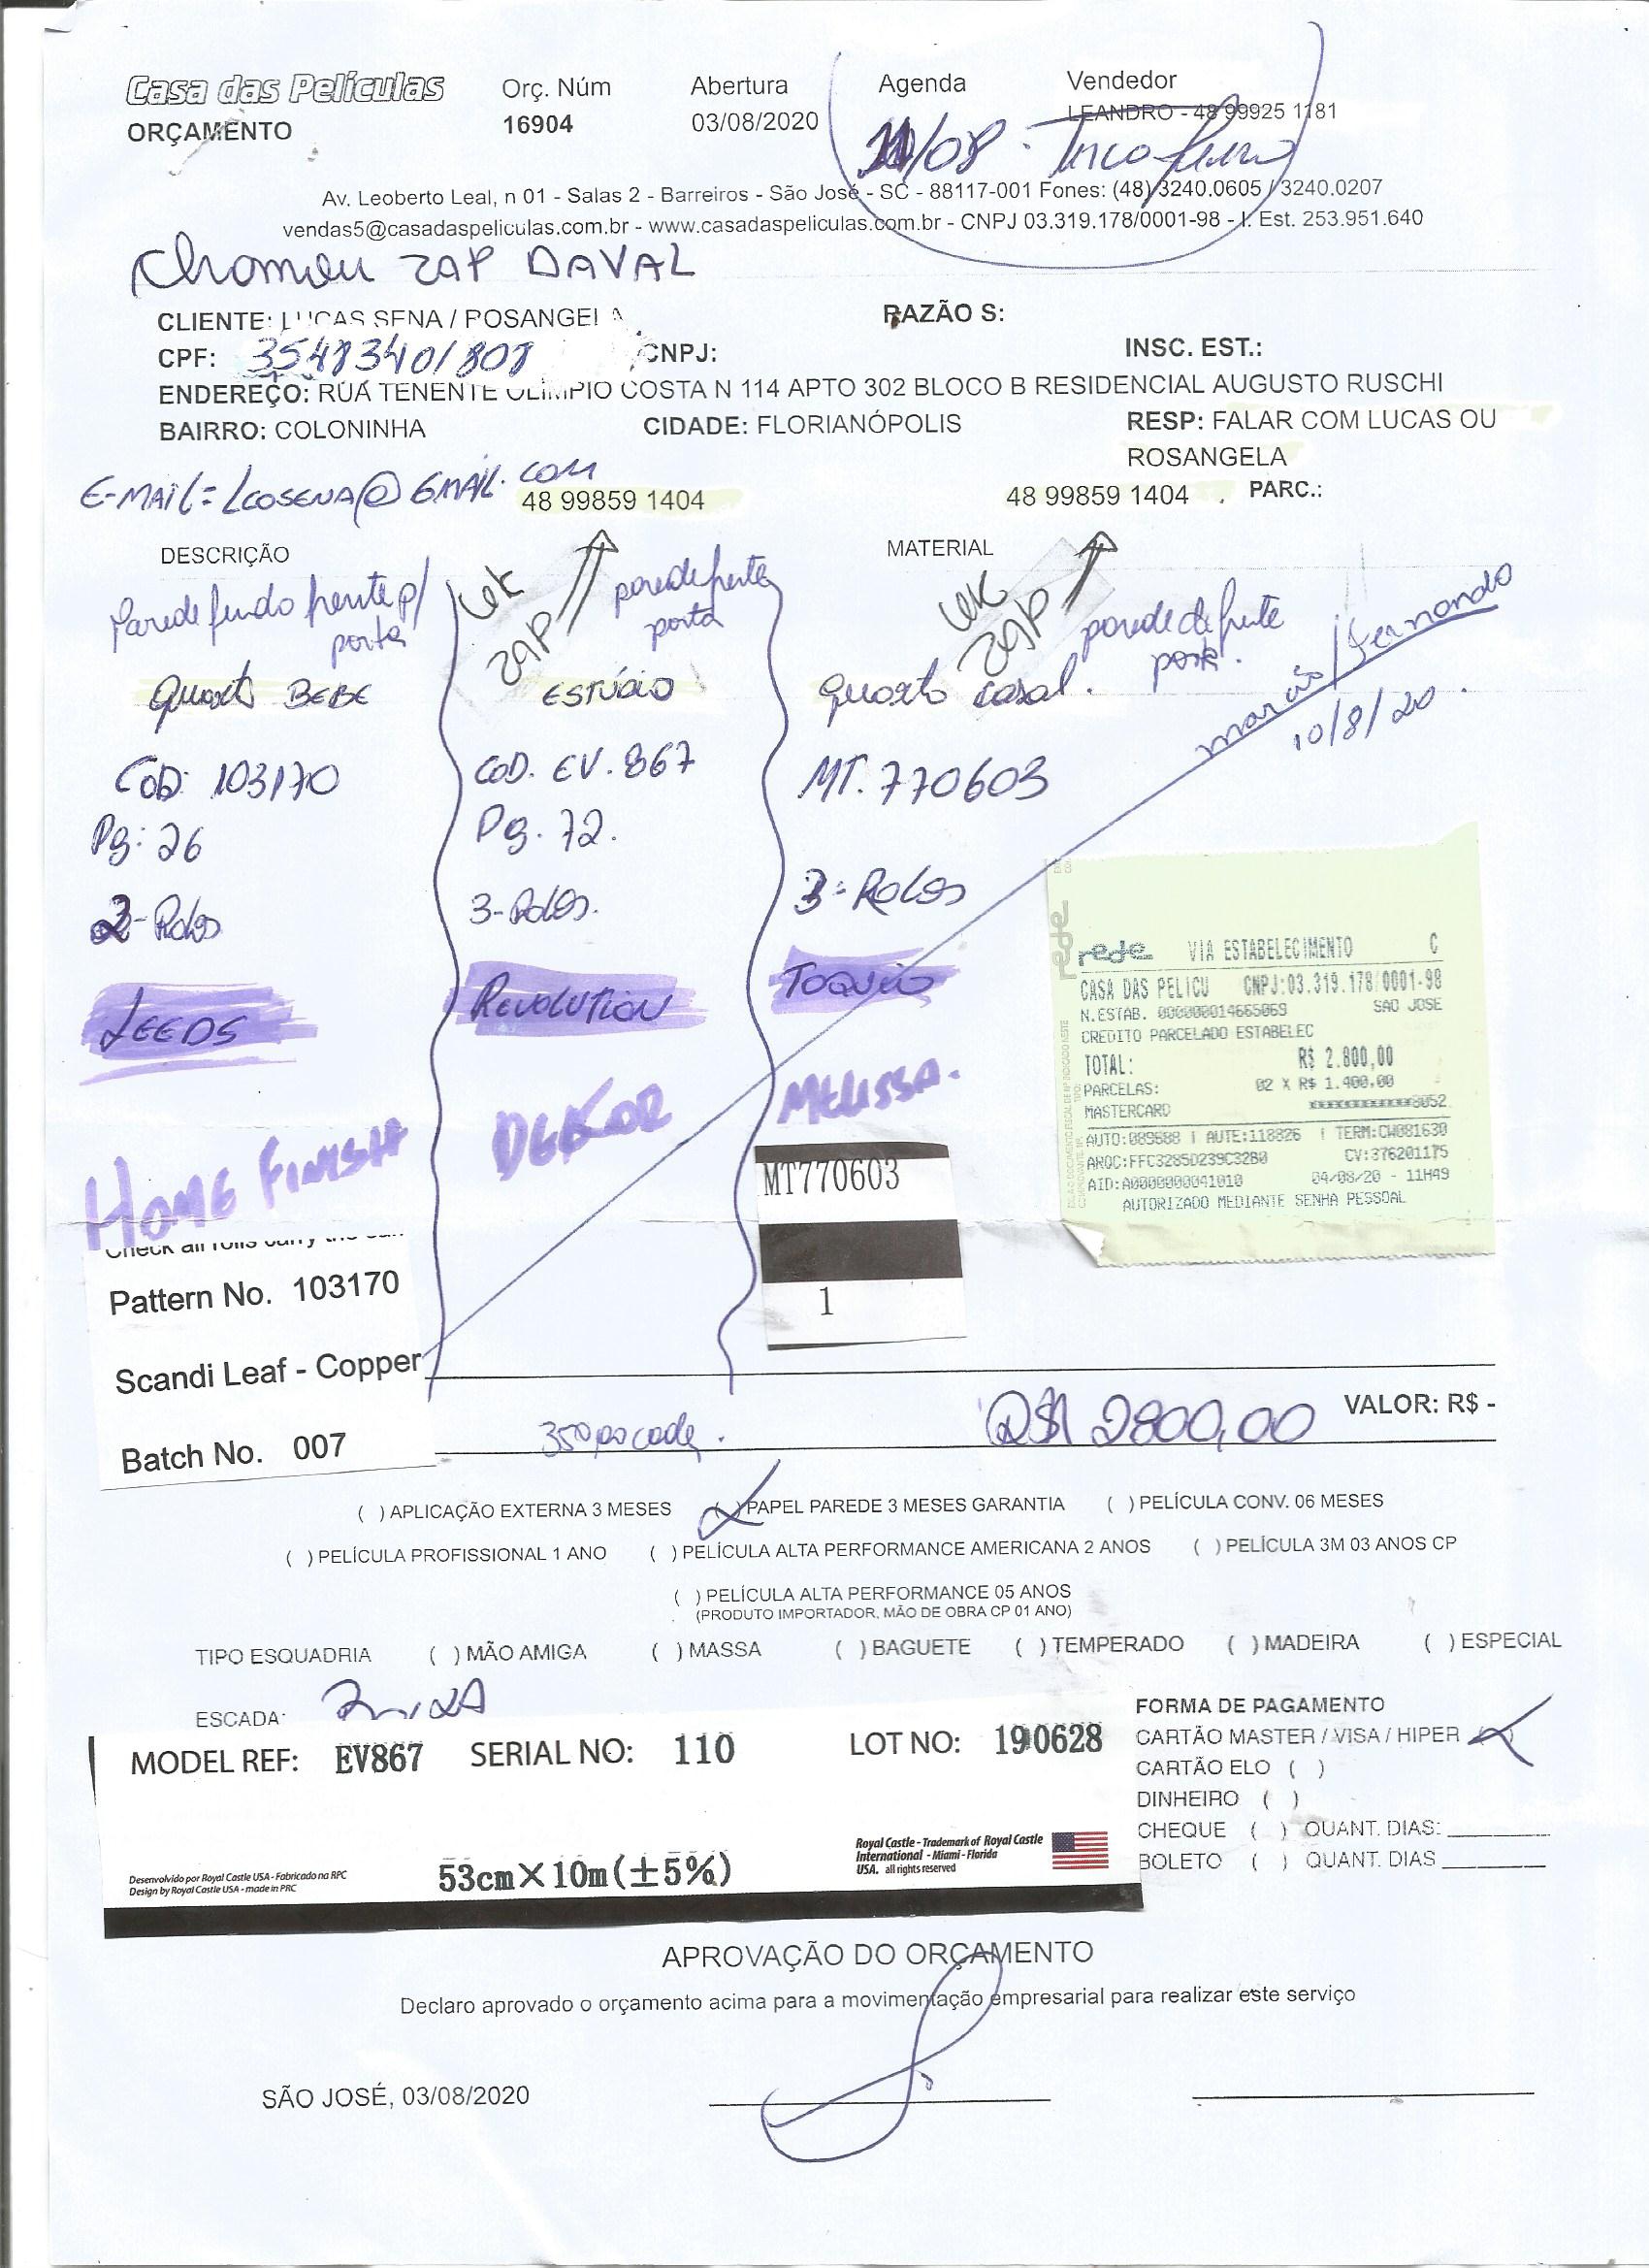 Casa das Películas Orç. Núm Abertura Agenda Vendedor
ORÇAMENTO 16904 03/08/2020 LEANDRO - 48 99925 1181
/08.
Av. Leoberto Leal, n 01 - Salas 2 - Barreiros - São José - SC - 88117-001 Fones: (48) 3240.0605 / 3240.0207
vendas5@casadaspeliculas.com.br - www.casadaspeliculas.com.br - CNPJ 03.319.178/0001-98 - I. Est. 253.951.640
Chamou ZAP DAVAL
CLIENTE: LUCAS SENA / ROSANGELA RAZÃO S:
CPF: 35483401808 CNPJ: INSC. EST.:
ENDEREÇO: RUA TENENTE OLIMPIO COSTA N 114 APTO 302 BLOCO B RESIDENCIAL AUGUSTO RUSCHI
BAIRRO: COLONINHA CIDADE: FLORIANÓPOLIS RESP: FALAR COM LUCAS OU
ROSANGELA
E-MAIL= LCOSENA@GMAIL.COM 48 99859 1404 48 99859 1404 . PARC.:
DESCRIÇÃO MATERIAL
Parede fundo frente p/
porta
ZAP
parede frente
porta
ZAP
parede de frente
porta.
Quarto BEBE ESTÚDIO quarto casal.
marcão/Fernando
10/8/20.
COD: 103170 COD. EV. 867 MT. 770603
Pg: 26 Pg. 72.
2-Rolos 3-Rolos. 3-Rolos
LEEDS REVOLUTION TOQUIO
HOME FINISH DEKOR MELISSA.
rede
rede VIA ESTABELECIMENTO C
CASA DAS PELICU CNPJ:03.319.178/0001-98
N.ESTAB. 000000014665069 SAO JOSE
CREDITO PARCELADO ESTABELEC
TOTAL: R$ 2.800,00
PARCELAS: 02 X R$ 1.400,00
MASTERCARD xxxxxxxxxxxx8052
AUTO:089688 | AUTE:118826 | TERM:CW081630
ARQC:FFC3285D239C32B0 CV:376201175
AID:A0000000041010 04/08/20 - 11H49
AUTORIZADO MEDIANTE SENHA PESSOAL
MT770603
1
Check all rolls carry the
Pattern No. 103170
Scandi Leaf - Copper
Batch No. 007
350 po cada. R$ 2800,00 VALOR: R$ -
( ) APLICAÇÃO EXTERNA 3 MESES (X) PAPEL PAREDE 3 MESES GARANTIA ( ) PELÍCULA CONV. 06 MESES
( ) PELÍCULA PROFISSIONAL 1 ANO ( ) PELÍCULA ALTA PERFORMANCE AMERICANA 2 ANOS ( ) PELÍCULA 3M 03 ANOS CP
( ) PELÍCULA ALTA PERFORMANCE 05 ANOS
(PRODUTO IMPORTADOR, MÃO DE OBRA CP 01 ANO)
TIPO ESQUADRIA ( ) MÃO AMIGA ( ) MASSA ( ) BAGUETE ( ) TEMPERADO ( ) MADEIRA ( ) ESPECIAL
ESCADA:
MODEL REF: EV867 SERIAL NO: 110 LOT NO: 190628
53cm×10m(±5%)
Desenvolvido por Royal Castle USA - Fabricado na RPC
Design by Royal Castle USA - made in PRC
Royal Castle - Trademark of Royal Castle
International - Miami - Florida
USA. all rights reserved
FORMA DE PAGAMENTO
CARTÃO MASTER / VISA / HIPER (X)
CARTÃO ELO ( )
DINHEIRO ( )
CHEQUE ( ) QUANT. DIAS:
BOLETO ( ) QUANT. DIAS
APROVAÇÃO DO ORÇAMENTO
Declaro aprovado o orçamento acima para a movimentação empresarial para realizar este serviço
SÃO JOSÉ, 03/08/2020